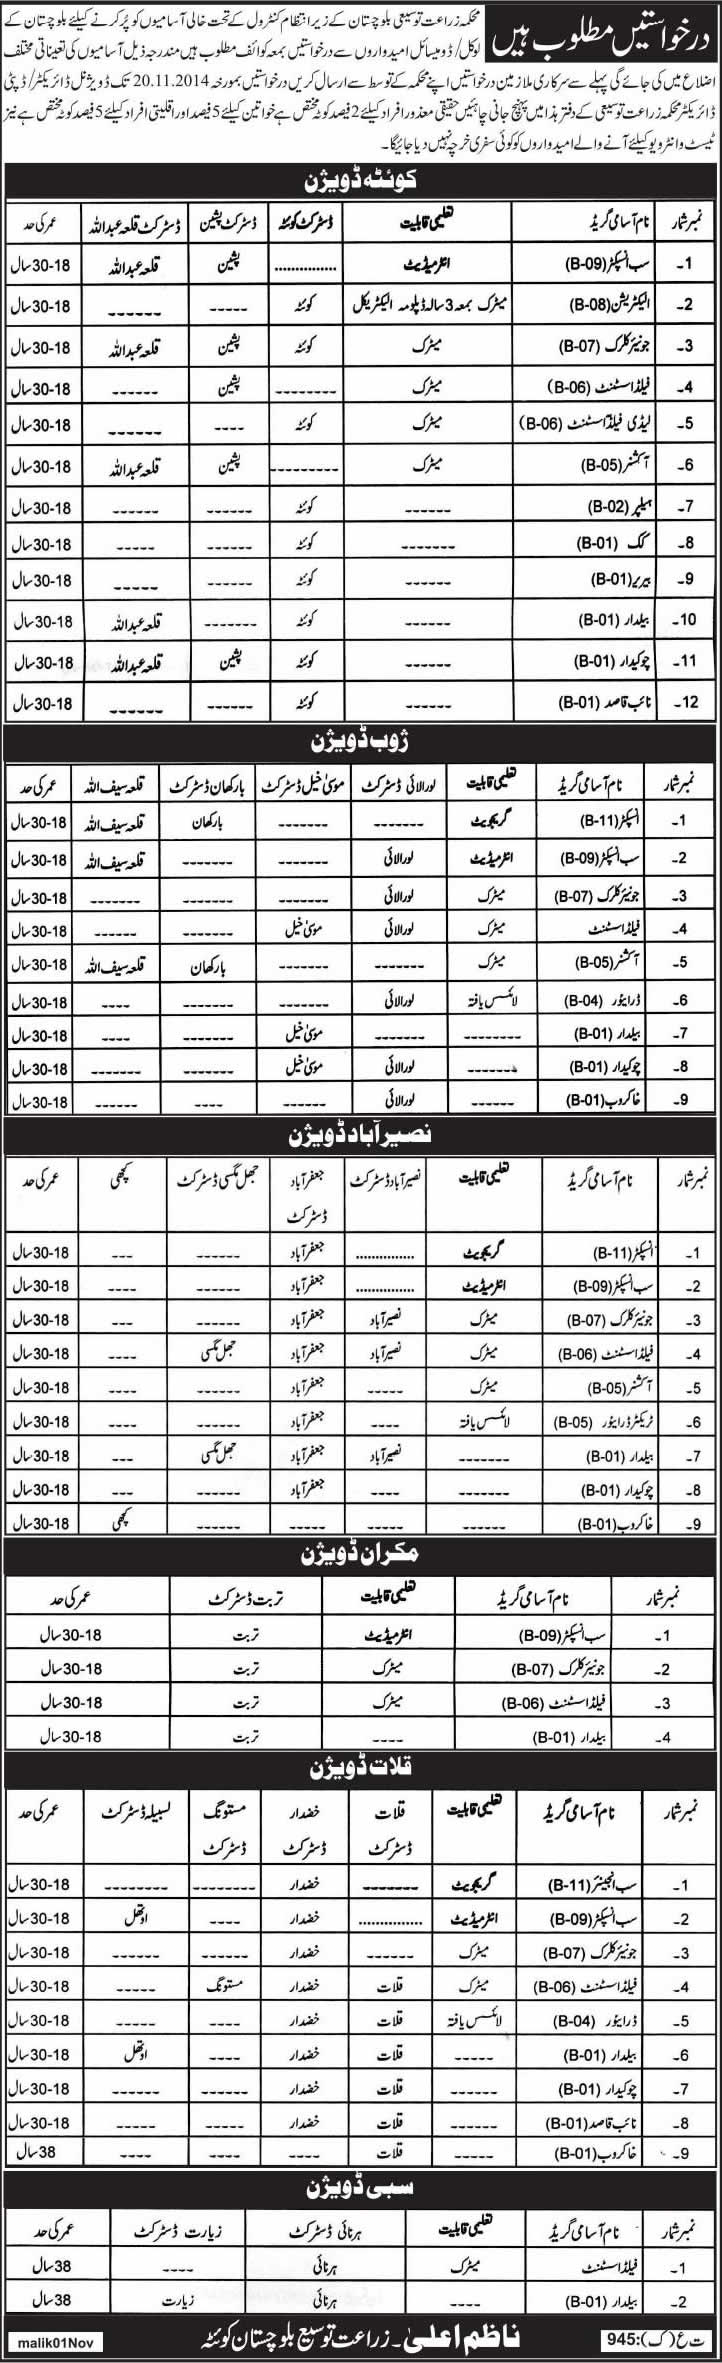 درخواستیں مطلوب ہیں
محکمہ زراعت توسیعی بلوچستان کے زیر انتظام کنٹرول کے تحت خالی آسامیوں کو پُر کرنے کیلئے بلوچستان کے
لوکل/ڈومیسائل امیدواروں سے درخواستیں بمعہ کوائف مطلوب ہیں مندرجہ ذیل آسامیوں کی تعیناتی مختلف
اضلاع میں کی جائے گی پہلے سے سرکاری ملازمین درخواستیں اپنے محکمہ کے توسط سے ارسال کریں درخواستیں بمورخہ 20.11.2014 تک ڈویژنل ڈائریکٹر/ڈپٹی
ڈائریکٹر محکمہ زراعت توسیعی کے دفتر ہذا میں پہنچ جانی چاہئیں حقیقی معذور افراد کیلئے 2 فیصد کوٹہ مختص ہے خواتین کیلئے 5 فیصد اور اقلیتی افراد کیلئے 5 فیصد کوٹہ مختص ہے نیز
ٹیسٹ و انٹرویو کیلئے آنے والے امیدواروں کو کوئی سفری خرچہ نہیں دیا جائیگا۔
کوئٹہ ڈویژن
نمبر شمار نام آسامی گریڈ تعلیمی قابلیت ڈسٹرکٹ کوئٹہ ڈسٹرکٹ پشین ڈسٹرکٹ قلعہ عبداللہ عمر کی حد
1۔ سب انسپکٹر (B-09) انٹرمیڈیٹ ............... پشین قلعہ عبداللہ 18-30 سال
2۔ الیکٹریشن (B-08) میٹرک بمعہ 3 سالہ ڈپلومہ الیکٹریکل کوئٹہ ----- ------ 18-30 سال
3۔ جونیئر کلرک (B-07) میٹرک کوئٹہ پشین قلعہ عبداللہ 18-30 سال
4۔ فیلڈ اسسٹنٹ (B-06) میٹرک -------- پشین ------ 18-30 سال
5۔ لیڈی فیلڈ اسسٹنٹ (B-06) میٹرک کوئٹہ ---- ------ 18-30 سال
6۔ آکشنر (B-05) میٹرک --------- پشین قلعہ عبداللہ 18-30 سال
7۔ ہیلپر (B-02) ------ کوئٹہ ------ ------ 18-30 سال
8۔ کک (B-01) ------- کوئٹہ ------ ----- 18-30 سال
9۔ بیریر (B-01) ------ کوئٹہ ------ ----- 18-30 سال
10۔ بیلدار (B-01) ------ کوئٹہ ------- قلعہ عبداللہ 18-30 سال
11۔ چوکیدار (B-01) ------ کوئٹہ پشین قلعہ عبداللہ 18-30 سال
12۔ نائب قاصد (B-01) ------ کوئٹہ ------ ------ 18-30 سال
ژوب ڈویژن
نمبر شمار نام آسامی گریڈ تعلیمی قابلیت لورالائی ڈسٹرکٹ موسیٰ خیل ڈسٹرکٹ بارکھان ڈسٹرکٹ قلعہ سیف اللہ عمر کی حد
1۔ انسپکٹر (B-11) گریجویٹ ------- ------- بارکھان قلعہ سیف اللہ 18-30 سال
2۔ سب انسپکٹر (B-09) انٹرمیڈیٹ لورالائی ------- ------- قلعہ سیف اللہ 18-30 سال
3۔ جونیئر کلرک (B-07) میٹرک لورالائی ------- ------- ------- 18-30 سال
4۔ فیلڈ اسسٹنٹ میٹرک لورالائی موسیٰ خیل ------- ------ 18-30 سال
5۔ آکشنر (B-05) میٹرک ------- ------- بارکھان قلعہ سیف اللہ 18-30 سال
6۔ ڈرائیور (B-04) لائسنس یافتہ لورالائی ------- ------- ---- 18-30 سال
7۔ بیلدار (B-01) -------- ------- موسیٰ خیل ------- ---- 18-30 سال
8۔ چوکیدار (B-01) ------- لورالائی موسیٰ خیل ------- ------- 18-30 سال
9۔ خاکروب (B-01) ------ لورالائی ------ ---- ------ 18-30 سال
نصیر آباد ڈویژن
نمبر شمار نام آسامی گریڈ تعلیمی قابلیت نصیر آباد ڈسٹرکٹ جعفر آباد ڈسٹرکٹ جھل مگسی ڈسٹرکٹ کچھی عمر کی حد
1۔ انسپکٹر (B-11) گریجویٹ ............... جعفر آباد ------ --- 18-30 سال
2۔ سب انسپکٹر (B-09) انٹرمیڈیٹ ............... جعفر آباد ------ ---- 18-30 سال
3۔ جونیئر کلرک (B-07) میٹرک نصیر آباد جعفر آباد ------ --- 18-30 سال
4۔ فیلڈ اسسٹنٹ (B-06) میٹرک نصیر آباد جعفر آباد جھل مگسی ---- 18-30 سال
5۔ آکشنر (B-05) میٹرک ----- جعفر آباد ------ ---- 18-30 سال
6۔ ٹریکٹر ڈرائیور (B-05) لائسنس یافتہ ---- جعفر آباد ------ ---- 18-30 سال
7۔ بیلدار (B-01) ------- نصیر آباد جعفر آباد جھل مگسی --- 18-30 سال
8۔ چوکیدار (B-01) ------- ---- جعفر آباد ------ --- 18-30 سال
9۔ خاکروب (B-01) ------ ----- ----- ------ کچھی 18-30 سال
مکران ڈویژن
نمبر شمار نام آسامی گریڈ تعلیمی قابلیت تربت ڈسٹرکٹ عمر کی حد
1۔ سب انسپکٹر (B-09) انٹرمیڈیٹ تربت 18-30 سال
2۔ جونیئر کلرک (B-07) میٹرک تربت 18-30 سال
3۔ فیلڈ اسسٹنٹ (B-06) میٹرک تربت 18-30 سال
4۔ بیلدار (B-01) ---- تربت 18-30 سال
قلات ڈویژن
نمبر شمار نام آسامی گریڈ تعلیمی قابلیت قلات ڈسٹرکٹ خضدار ڈسٹرکٹ مستونگ ڈسٹرکٹ لسبیلہ ڈسٹرکٹ عمر کی حد
1۔ سب انجینئر (B-11) گریجویٹ ------- خضدار -------- -------- 18-30 سال
2۔ سب انسپکٹر (B-09) انٹرمیڈیٹ ............... خضدار ---- اوتھل 18-30 سال
3۔ جونیئر کلرک (B-07) میٹرک ------ خضدار ------ ------ 18-30 سال
4۔ فیلڈ اسسٹنٹ (B-06) میٹرک قلات خضدار مستونگ ----- 18-30 سال
5۔ ڈرائیور (B-04) لائسنس یافتہ قلات خضدار ---- ----- 18-30 سال
6۔ بیلدار (B-01) ----- قلات خضدار ---- اوتھل 18-30 سال
7۔ چوکیدار (B-01) ------ قلات خضدار ------ ------ 18-30 سال
8۔ نائب قاصد (B-01) ------ قلات خضدار ---- ----- 18-30 سال
9۔ خاکروب (B-01) ----- قلات ---- ---- ---- 38 سال
سبی ڈویژن
نمبر شمار نام آسامی گریڈ تعلیمی قابلیت ہرنائی ڈسٹرکٹ زیارت ڈسٹرکٹ عمر کی حد
1۔ فیلڈ اسسٹنٹ میٹرک ہرنائی ---- 38 سال
2۔ بیلدار (B-01) ---- ہرنائی زیارت 38 سال
ت ع (ک): 945
ناظم اعلیٰ۔ زراعت توسیع بلوچستان کوئٹہ
malik01Nov